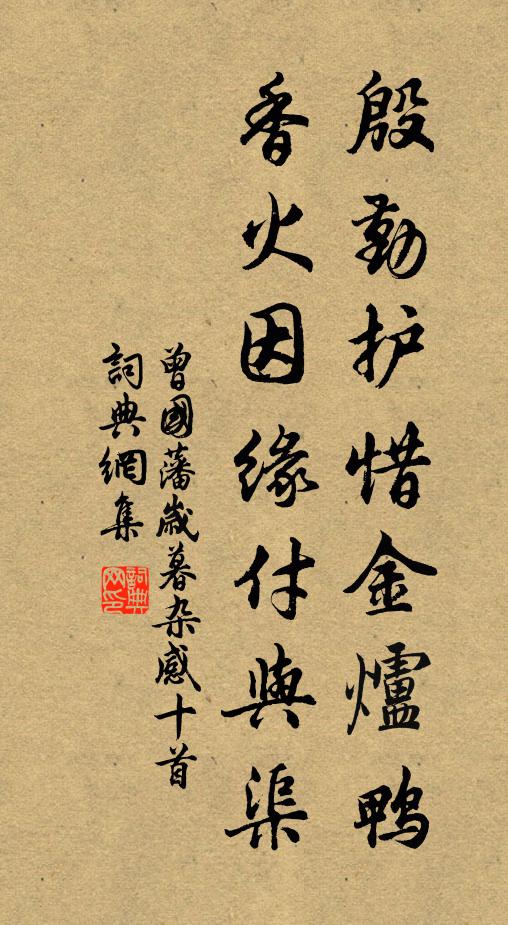 殷勤护惜金爐鸭
香火因缘付與渠
曾國藩歲暮杂感十首
詞典網集
詞典网印